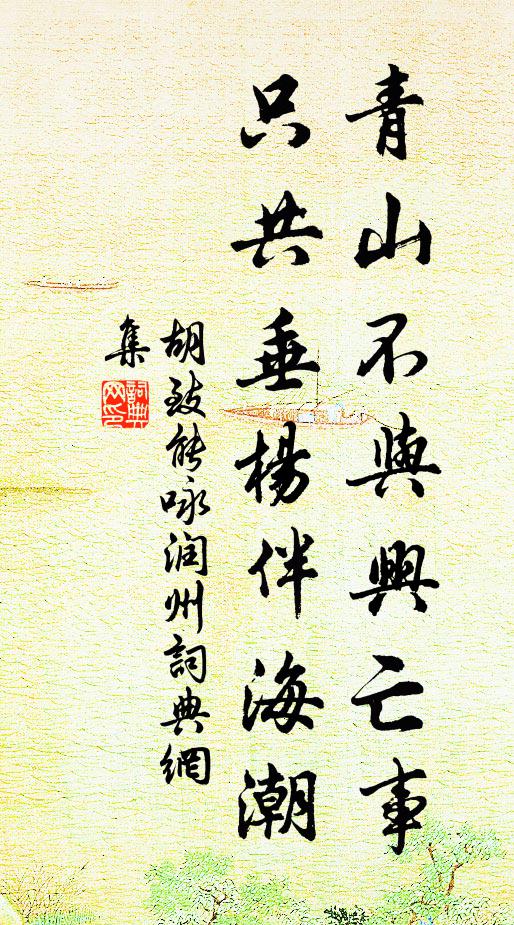 青山不與興亡事
只共垂楊伴海潮
胡致能咏润州詞典網
集
詞典
网印